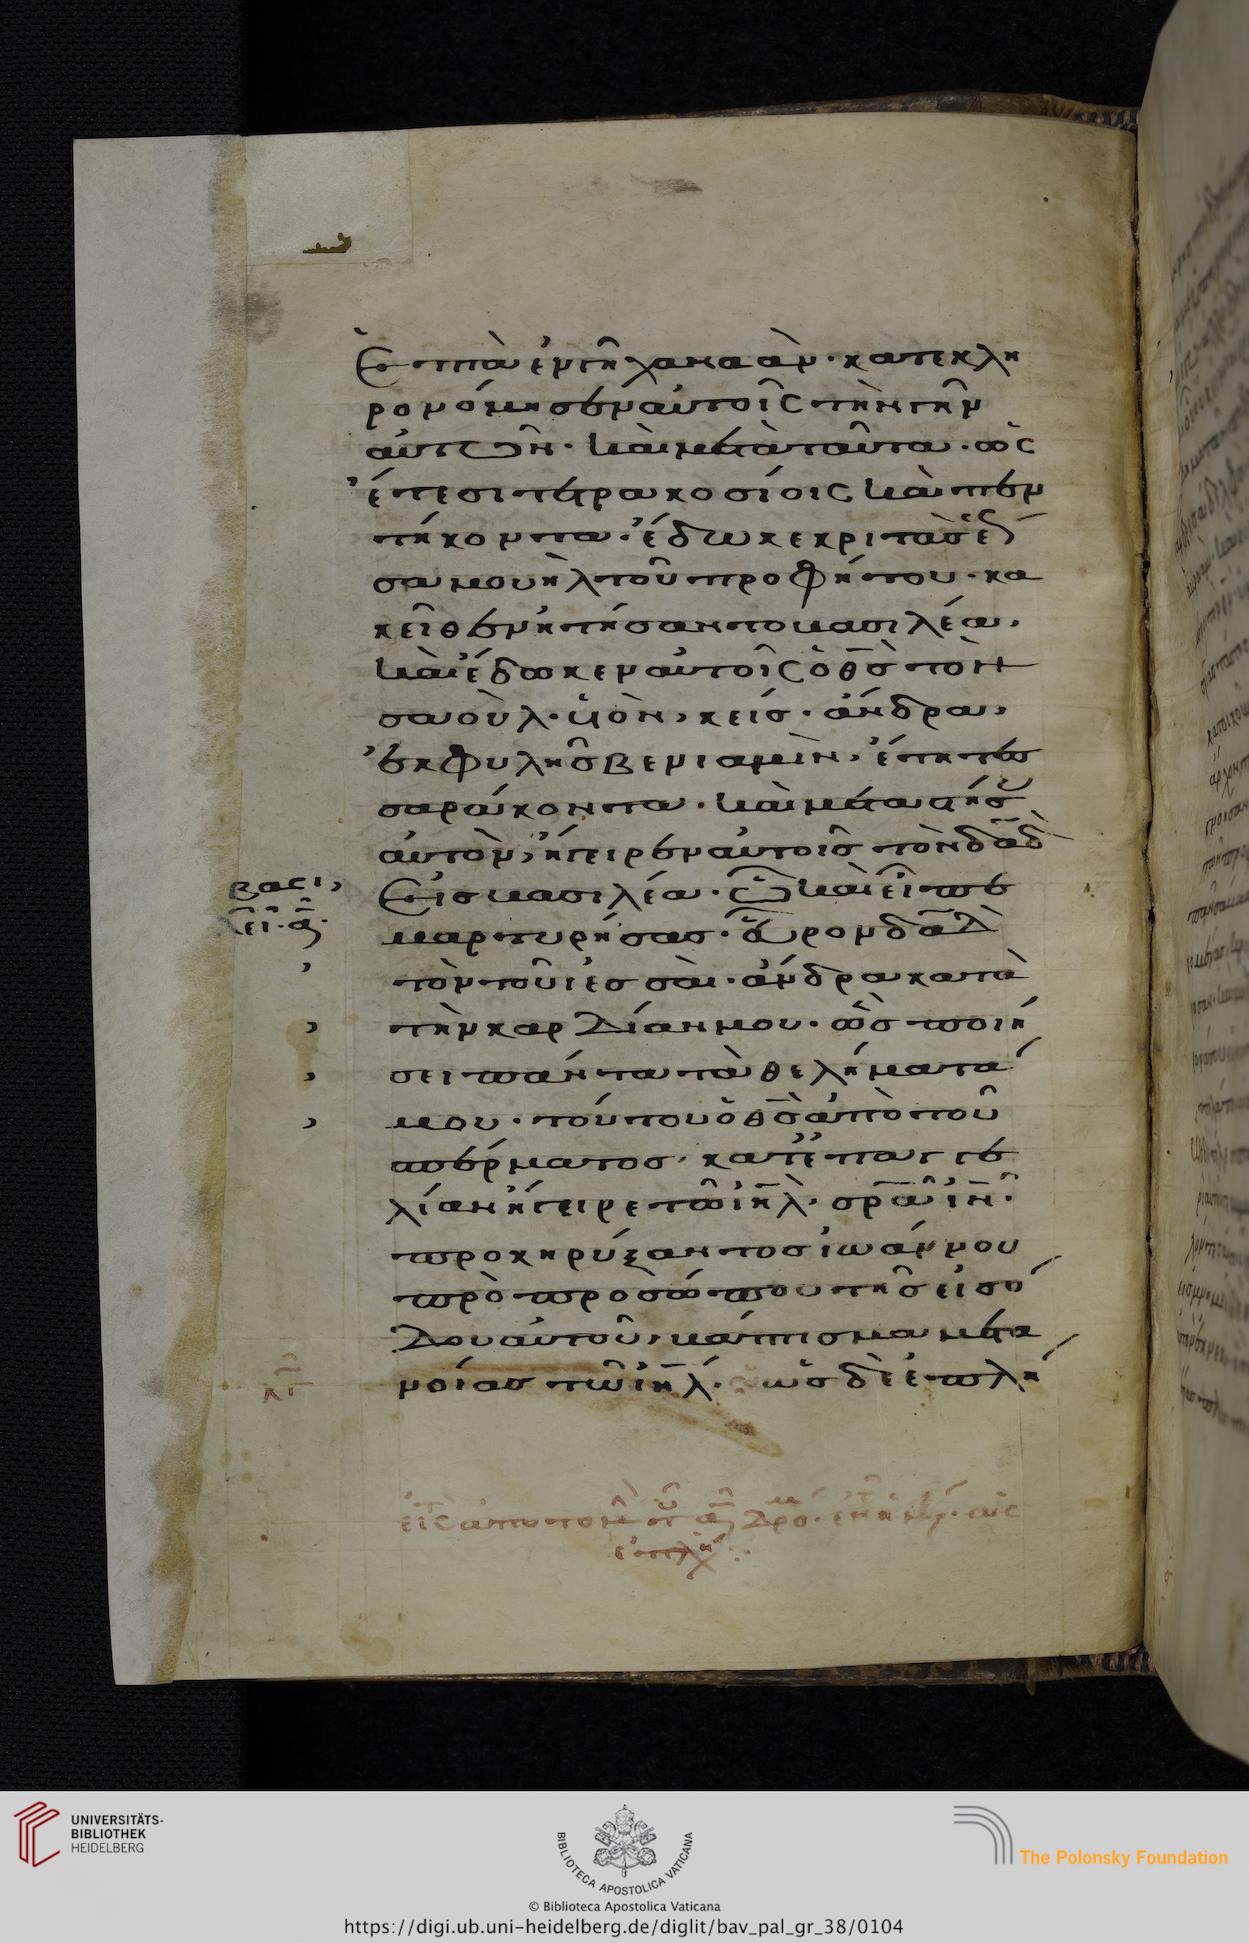 ἑπτὰ ἐν γῆ χαναὰν· κατεκλη
ρονόμησεν αὐτοῖς τὴν γῆν
αὐτῶν· καὶ μετὰ ταῦτα· ὡς
ἔτεσι τετρακοσίοις καὶ πεν
τήκοντα· ἔδωκε κριτὰς ἕως
σαμουὴλ τοῦ προφήτου· κα
κεῖθεν ἠτήσαντο βασιλέα,
καὶ ἔδωκεν αὐτοῖς ὁ θς̅ τὸν
σαοὺλ· υἱὸν, κείς· ἄνδρα,
ἐκ φυλῆς βενιαμὶν, ἔτη τεσ
σαράκοντα· καὶ μεταστήσ
αὐτὸν, ἤγειρεν αὐτοῖς τὸν δαδ̅
εἰς βασιλέα· ὧ καὶ εἶπε
μαρτυρήσας· εὗρον δαδ̅
τὸν τοῦ ἰεσσαὶ· ἄνδρα κατὰ
τὴν καρδίαν μου· ὃς ποιή
σει πάντα τὰ θελήματά
μου· τούτου ὁ θς̅ ἀπὸ τοῦ
σπέρματος, κατ' ἐπαγγε
λίαν ἤγειρε τῶ ιηλ̅· σρ̅α ιν̅·
προκηρύξαντος ἰωάννου
πρὸ προσώπου τῆς εἰσό
δου αὐτοῦ, βάπτισμα μετα
νοίας τῶ ιηλ̅· ὡς δὲ ἐπλή
βασι,
λει· α·
εἰς
ὡς
ἐπλη
UNIVERSITÄTS-
BIBLIOTHEK
HEIDELBERG
BIBLIOTECA APOSTOLICA VATICANA
The Polonsky Foundation
© Biblioteca Apostolica Vaticana
https://digi.ub.uni-heidelberg.de/diglit/bav_pal_gr_38/0104